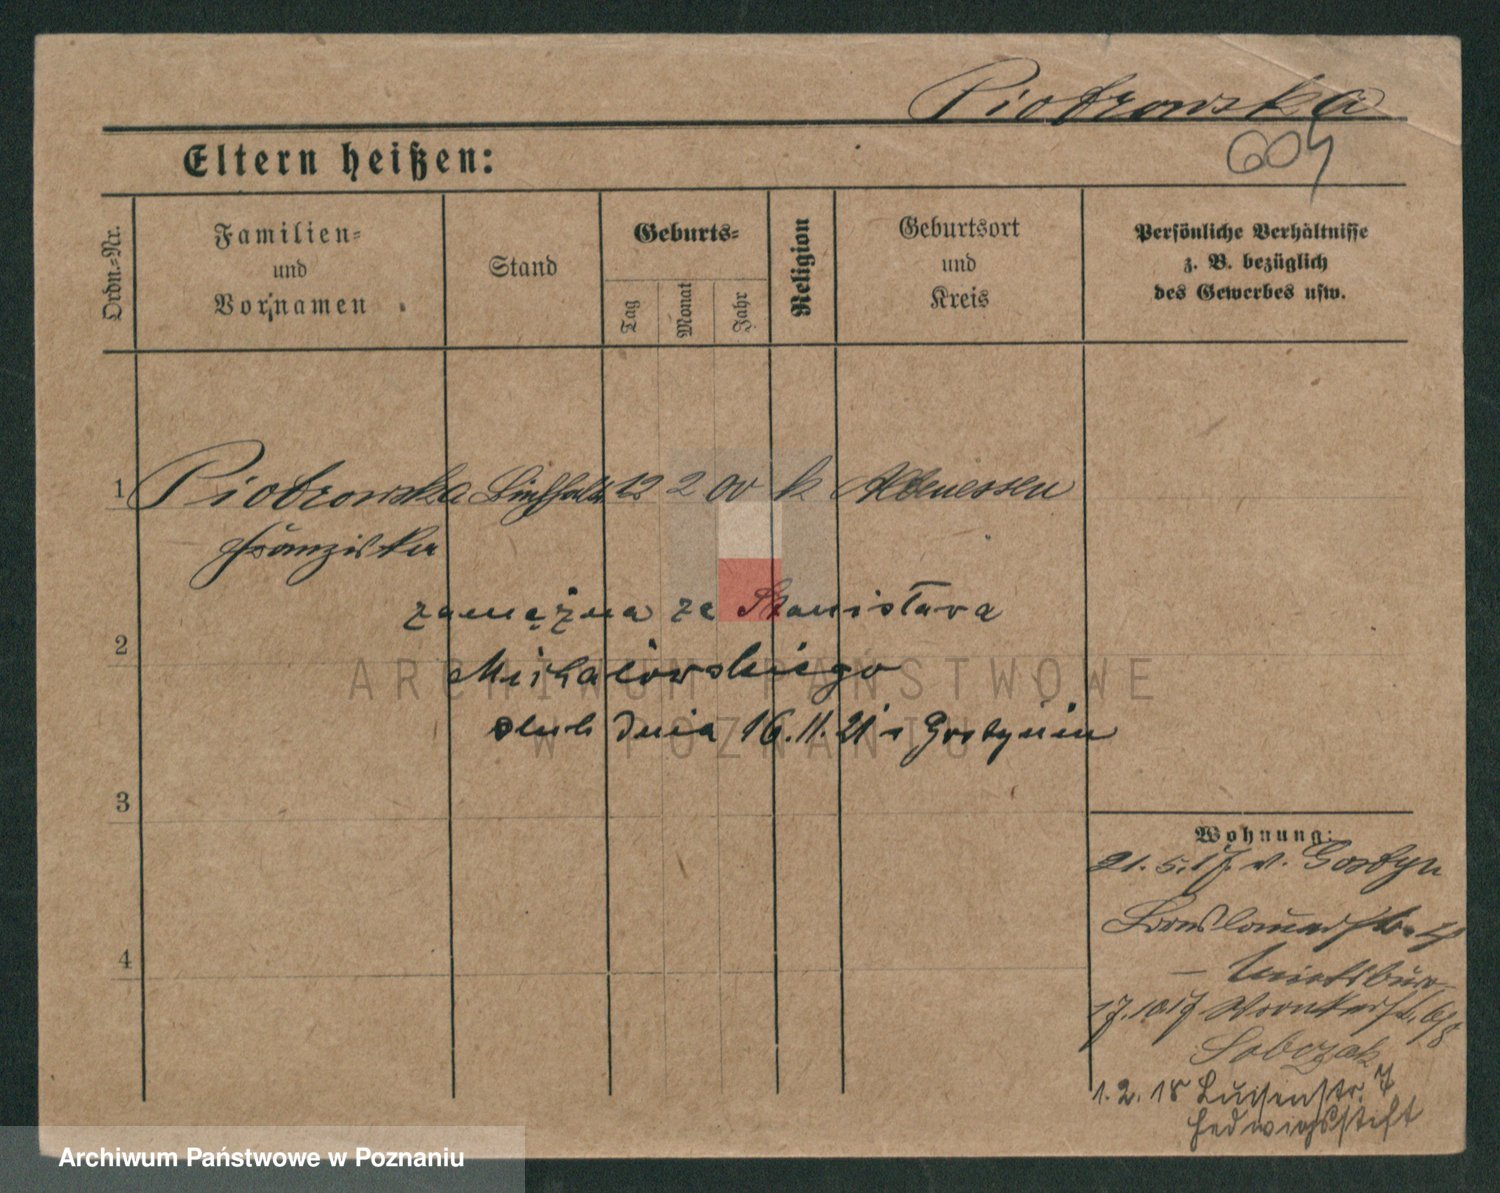 Piotrowska
604
Eltern heißen:
Ordn.=Nr.
Familien=
und
Vornamen
Stand
Geburts=
Tag
Monat
Jahr
Religion
Geburtsort
und
Kreis
Persönliche Verhältnisse
z. B. bezüglich
des Gewerbes usw.
1 Piotrowska 12 2 00 k Altenessen
Franziska
zamężna za Stanisława
2
Michałowskiego
ślub dnia 16.11.21 w Gostyniu
3
4
Wohnung:
21.5.17. v. Gostyn
Breslauerstr.
— Mietsbüro
17.10.17 Wronkerstr. 6/8
Sobczak
1.2.18 Luisenstr. 7
Hedwigsstift
ARCHIWUM PAŃSTWOWE
W POZNANIU
Archiwum Państwowe w Poznaniu